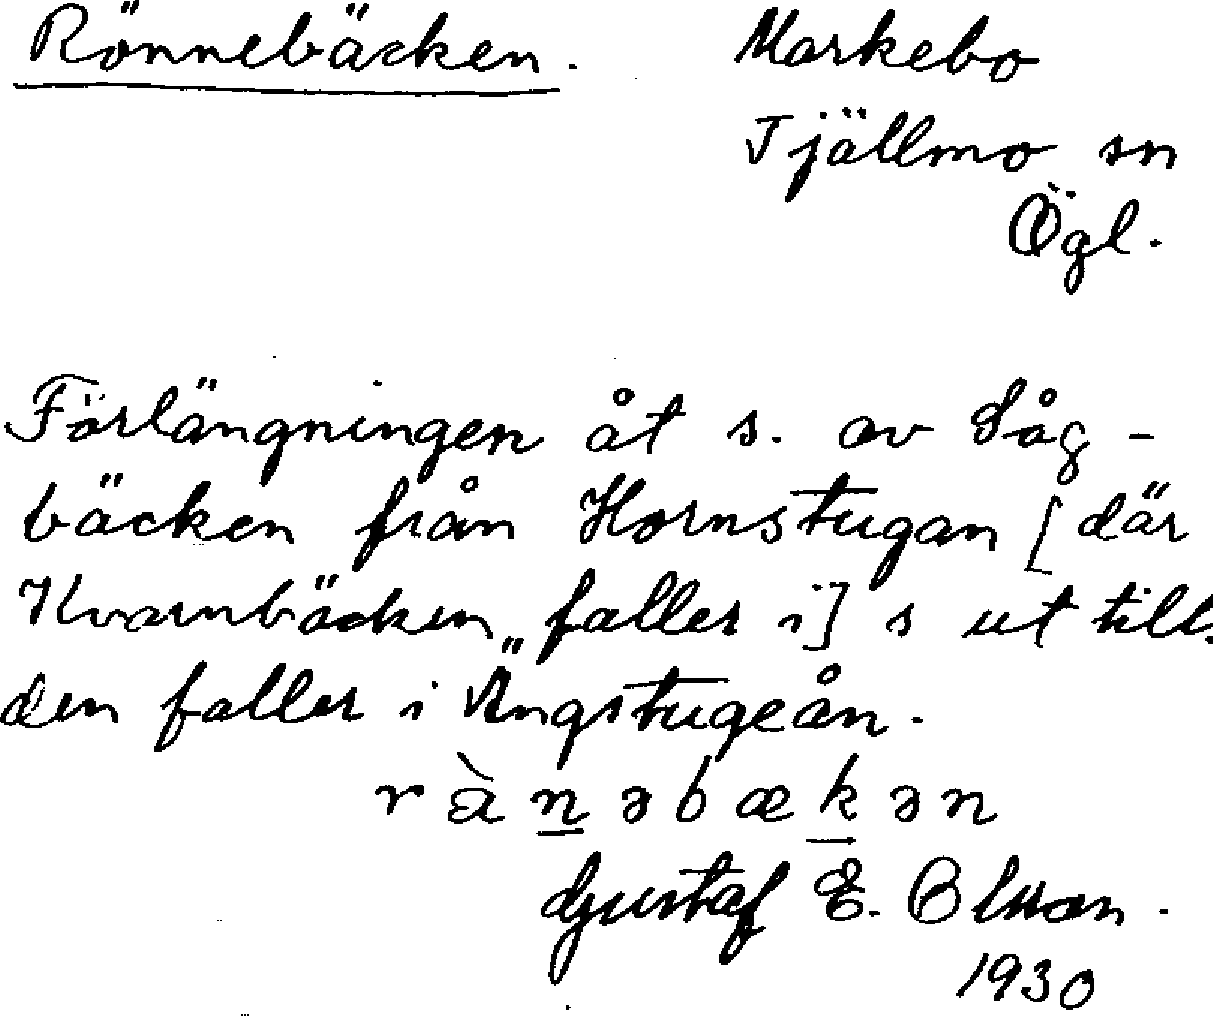 Rönnebäcken. Markebo
Tjällmo sn
Ögl.
Förlängningen åt s. av Såg-
bäcken från Hornstugan [där
Kvarnbäcken faller i] s ut till.
den faller i Ängstugeån.
r à n ə b æ k ə n
Gustaf E. Olsson.
1930